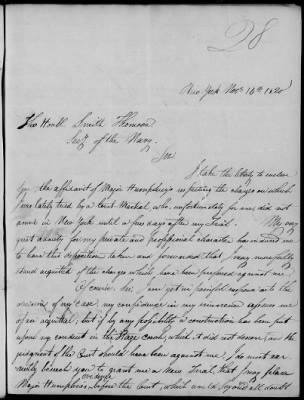 28
New York Novr 16th 1820
The Honble. Smith Thomson
Secy. of the Navy.
Sir
I take the liberty to enclose
for the affidavit of Major Humphreys respecting the charges on which
I was lately tried by a Court Martial, who, unfortunately for me, did not
arrive in New York until a few days after my Trial. My only
great anxiety for my private and professional character has induced me
to have this deposition taken and forwarded, that I may manifestly
stand acquitted of the charges which have been preferred against me.
Of course Sir, I am yet in painful suspense as to the
decision of my case; my confidence in my innocence assures me
of an acquittal; but if by any possibility a construction has been put
upon my conduct in the Stage Coach, which it did not deserve, and the
judgment of the Court should have been against me; I do most ear-
nestly beseech you to grant me a New Trial, that I may place
Major Humphreys evidence before the Court, which will beyond all doubt